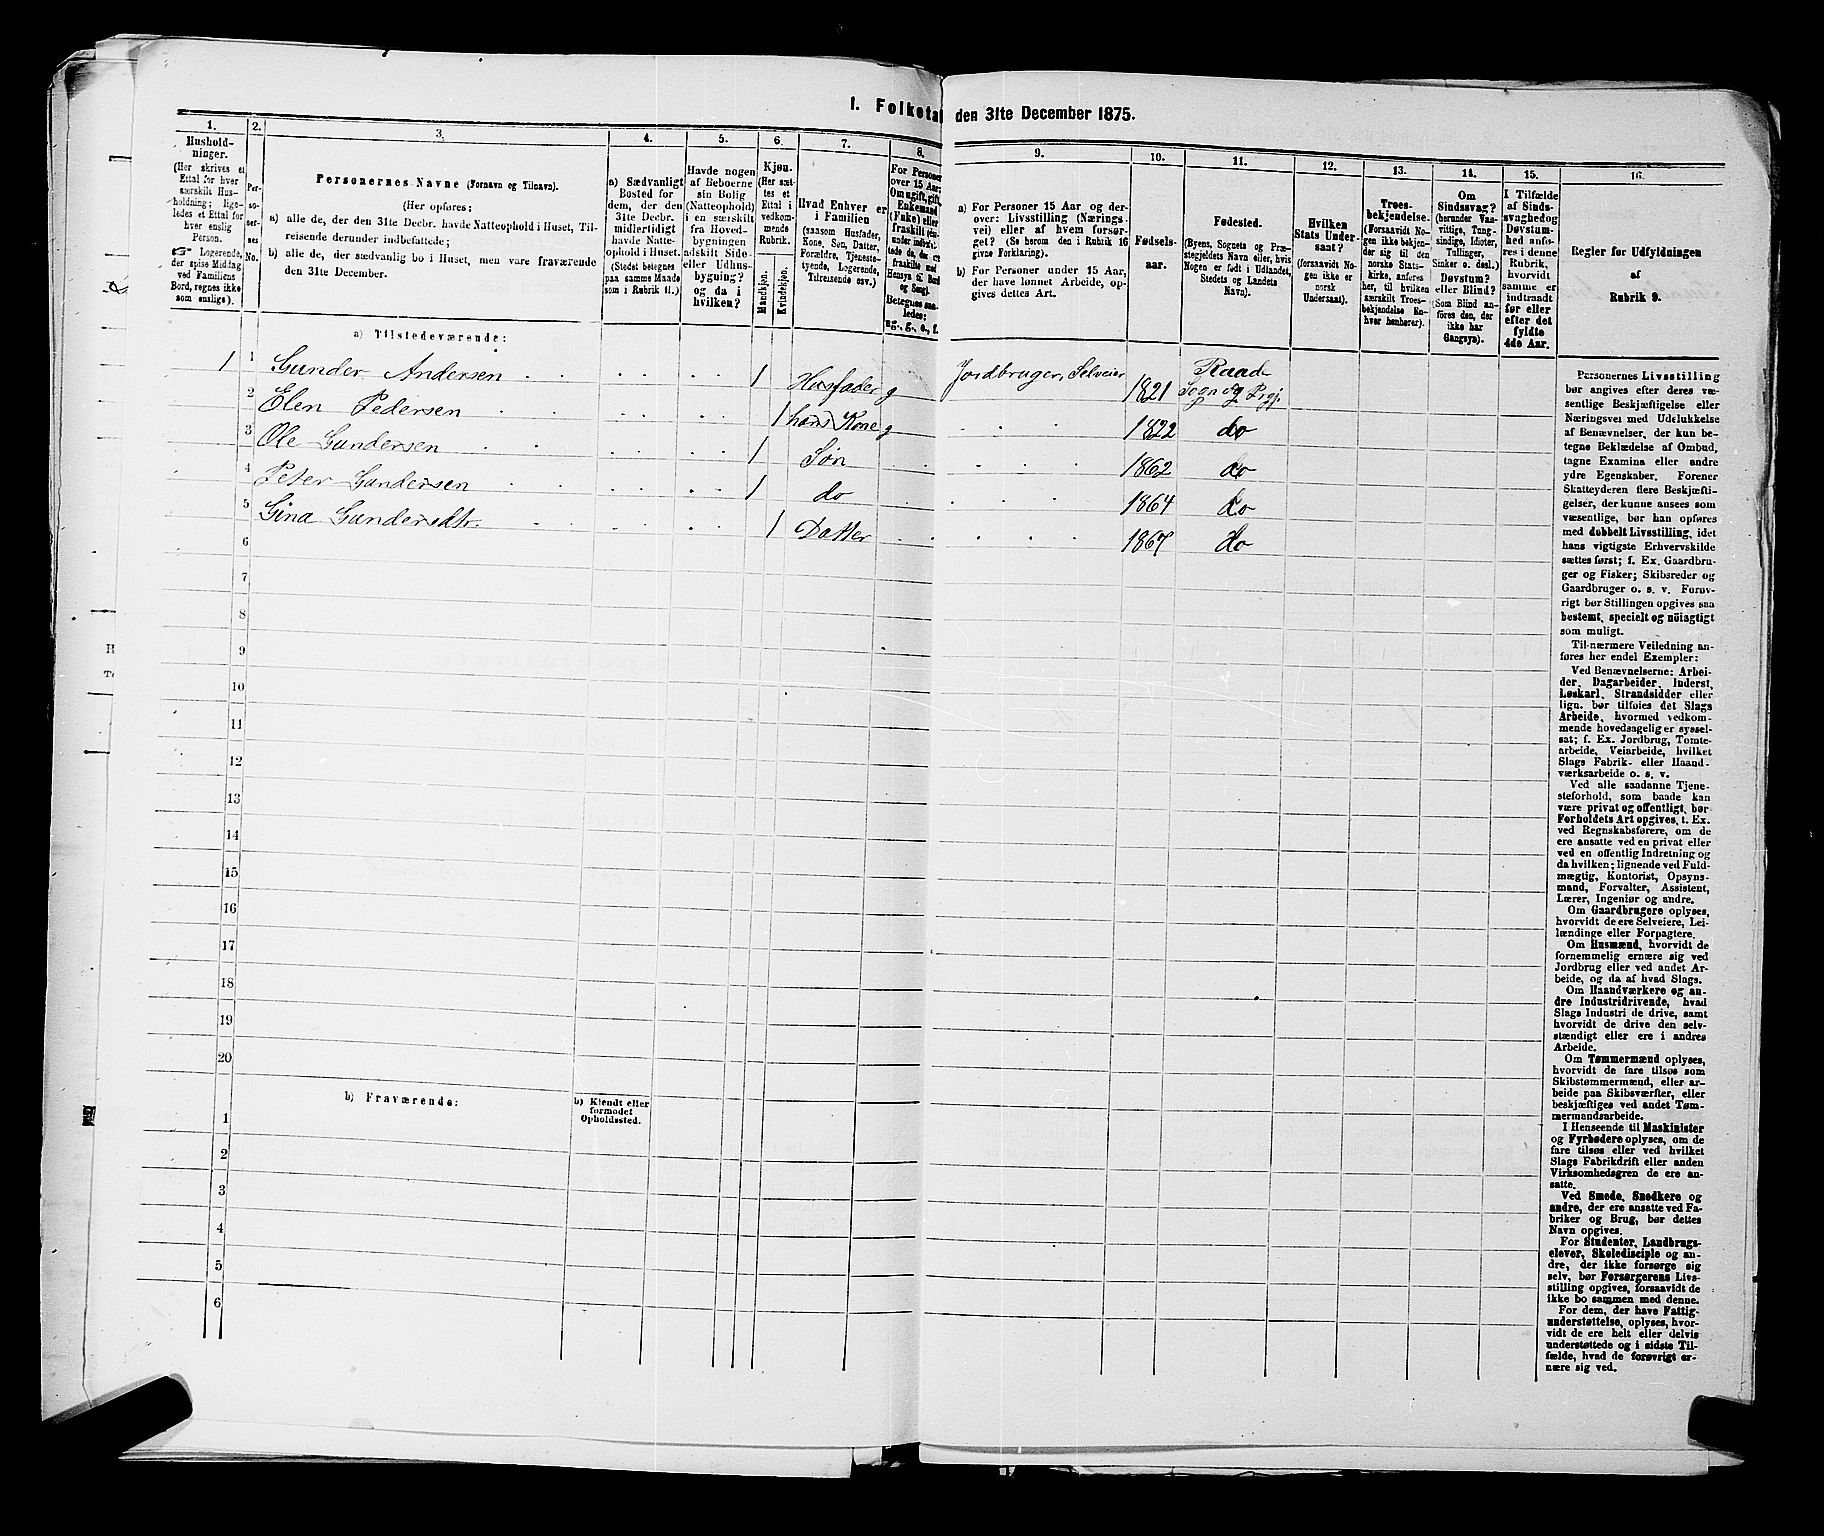 1. Folketal den 31te December 1875.
1. 2. 3. 4. 5. 6. 7. 8. 9. 10. 11. 12. 13. 14. 15. 16.
Hushold-
ninger.
(Her skrives et
Ettal for hver
særskilt Hus-
holdning; lige-
ledes et Ettal for
hver enslig
Person.
Logerende,
der spise Middag
ved Familiens
Bord, regnes ikke
som enslige).
Per-
so-
ner-
nes
No.
Personernes Navne (Fornavn og Tilnavn).
(Her opføres:
a) alle de, der den 31te Decbr. havde Natteophold i Huset, Til-
reisende derunder indbefattede;
b) alle de, der sædvanlig bo i Huset, men vare fraværende
den 31te December.
a) Sædvanligt
Bosted for
dem, der den
31te Decbr.
midlertidigt
havde Natte-
ophold i Huset.
(Stedet betegnes
paa samme Maade
som i Rubrik 11.)
Havde nogen
af Beboerne
sin Bolig
(Natteophold)
i en særskilt
fra Hoved-
bygningen
adskilt Side-
eller Udhus-
bygning?
og da i
hvilken?
Kjøn.
(Her sæt-
tes et
Ettal i
vedkom-
mende
Rubrik.
Mandkjøn.
Kvindekjøn.
Hvad Enhver er
i Familien
(saasom Husfader,
Kone, Søn, Datter,
Forældre, Tjeneste-
tyende, Logerende,
Tilreisende osv.)
For Personer
over 15 Aar:
Om ugift, gift,
Enkemand
(Enke) eller
fraskilt
Betegnes saa-
ledes:
ug., g., e., f.
a) For Personer 15 Aar og der-
over: Livsstilling (Nærings-
vei) eller af hvem forsør-
get? (Se herom den i Rubrik 16
givne Forklaring).
b) For Personer under 15 Aar,
der have lønnet Arbeide, op-
gives dettes Art.
Fødsels-
aar.
Fødested.
(Byens, Sognets og Præ-
stegjeldets Navn eller, hvis
Nogen er født i Udlandet,
Stedets og Landets
Navn).
Hvilken
Stats Under-
saat?
(forsaavidt No-
gen ikke er
norsk
Undersaat).
Troes-
bekjendelse.
(Forsaavidt No-
gen ikke bekjen-
der sig til den
norske Stats-
kirke, anføres
her, til hvilken
særskilt Troes-
bekjendelse En-
hver henhører).
Om
Sindssvag?
(herunder Van-
vittige, Tung-
sindige, Idioter,
Tullinger,
Sinker o. desl.)
Døvstum?
eller Blind?
(Som Blind an-
føres den, der
ikke har
Gangsyn).
I Tilfælde
af Sinds-
svaghed og
Døvstum-
hed anfø-
res i denne
Rubrik,
hvorvidt
samme er
indtraadt
før eller
efter det
fyldte
4de Aar.
Regler for Udfyldningen
af
Rubrik 9.
a) Tilstedeværende:
1 1 Gunder Andersen 1 Husfader g Jordbruger, Selveier 1821 Raade Sogn og Prgj.
2 Elen Pedersen 1 hans Kone g 1822 do
3 Ole Gundersen 1 Søn 1862 do
4 Peter Gundersen 1 do 1864 do
5 Gina Gundersdtr. 1 Datter 1867 do
6
7
8
9
10
11
12
13
14
15
16
17
18
19
20
b) Fraværende:
b) Kjendt eller
formodet
Opholdssted.
1
2
3
4
5
6
Personernes Livsstilling
bør angives efter deres væ-
sentlige Beskjæftigelse eller
Næringsvei med Udelukkelse
af Benævnelser, der kun be-
tegne Beklædelse af Ombud,
tagne Examina eller andre
ydre Egenskaber. Forener
Skatteyderen flere Beskjæfti-
gelser, der kunne ansees som
væsentlige, bør han opføres
med dobbelt Livsstilling, idet
hans vigtigste Erhvervskilde
sættes først; f. Ex. Gaardbru-
ger og Fisker; Skibsreder og
Gaardbruger o. s. v. Forøv-
rigt bør Stillingen opgives saa
bestemt, specielt og nöiagtigt
som muligt.
Til nærmere Veiledning an-
føres her endel Exempler:
Ved Benævnelserne: Arbei-
der, Dagarbeider, Inderst,
Løskarl, Strandsidder eller
lign. bør tilføies det Slags
Arbeide, hvormed vedkom-
mende hovedsagelig er syssel-
sat; f. Ex. Jordbrug, Tomte-
arbeide, Veiarbeide, hvilket
Slags Fabrik- eller Haand-
værksarbeide o. s. v.
Ved alle saadanne Tjene-
steforhold, som baade kan
være privat og offentligt, bør
Forholdets Art opgives, t. Ex.
ved Regnskabsførere, om de
ere ansatte ved en privat eller
ved en offentlig Indretning og
da hvilken; lignende ved Fuld-
mægtig, Kontorist, Opsyns-
mand, Forvalter, Assistent,
Lærer, Ingeniør og andre.
Om Gaardbrugere oplyses,
hvorvidt de ere Selveiere, Lei-
lændinge eller Forpagtere.
Om Husmænd, hvorvidt de
fornemmelig ernære sig ved
Jordbrug eller ved andet Ar-
beide, og da af hvad Slags.
Om Haandværkere og an-
dre Industridrivende, hvad
Slags Industri de drive, samt
hvorvidt de drive den selv-
stændigt eller ere i andres
Arbeide.
Om Tømmermænd oplyses,
hvorvidt de fare tilsøs som
Skibstømmermænd, eller ar-
beide paa Skibsværfter, eller
beskjæftiges ved andet Tøm-
mermandsarbeide.
I Henseende til Maskinister
og Fyrbødere oplyses, om de
fare tilsøs eller ved hvilket
Slags Fabrikdrift eller anden
Virksomhedsgren de ere an-
satte.
Ved Smede, Snedkere og
andre, der ere ansatte ved Fa-
briker og Brug, bør dettes
Navn opgives.
For Studenter, Landbrugs-
elever, Skoledisciple og an-
dre, der ikke forsørge sig
selv, bør Forsørgerens Livs-
stilling opgives, forsaavidt de
ikke bo sammen med denne.
For dem, der have Fattig-
understøttelse, oplyses, hvor-
vidt de ere helt eller delvis
understøttede og i sidste Til-
fælde, hvad de forøvrigt er-
nære sig ved.